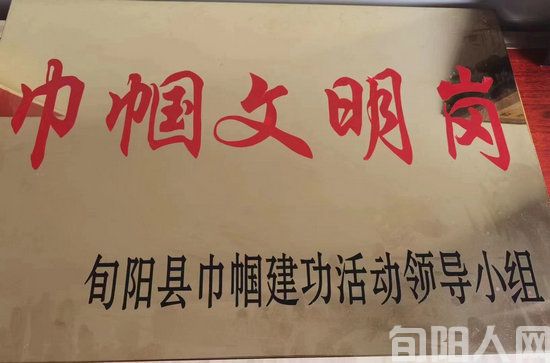 巾帼文明岗
旬阳县巾帼建功活动领导小组
旬阳人网